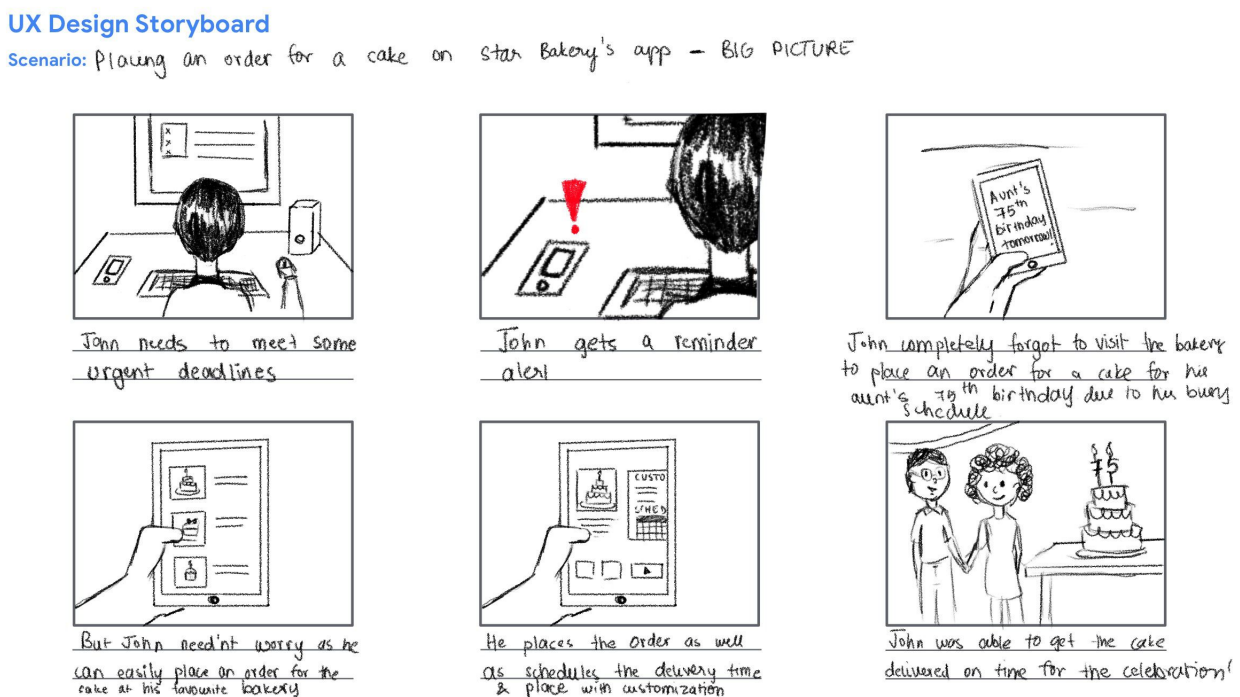 UX Design Storyboard
Scenario: Placing an order for a cake on Star Bakery's app - BIG PICTURE
John needs to meet some
urgent deadlines
John gets a reminder
alert
Aunt's
75th
birthday
tomorrow!
John completely forgot to visit the bakery
to place an order for a cake for his
aunt's 75th birthday due to his busy
schedule
But John need'nt worry as he
can easily place an order for the
cake at his favourite bakery
CUSTO
SCHED
He places the order as well
as schedules the delivery time
& place with customization
75
John was able to get the cake
delivered on time for the celebration!